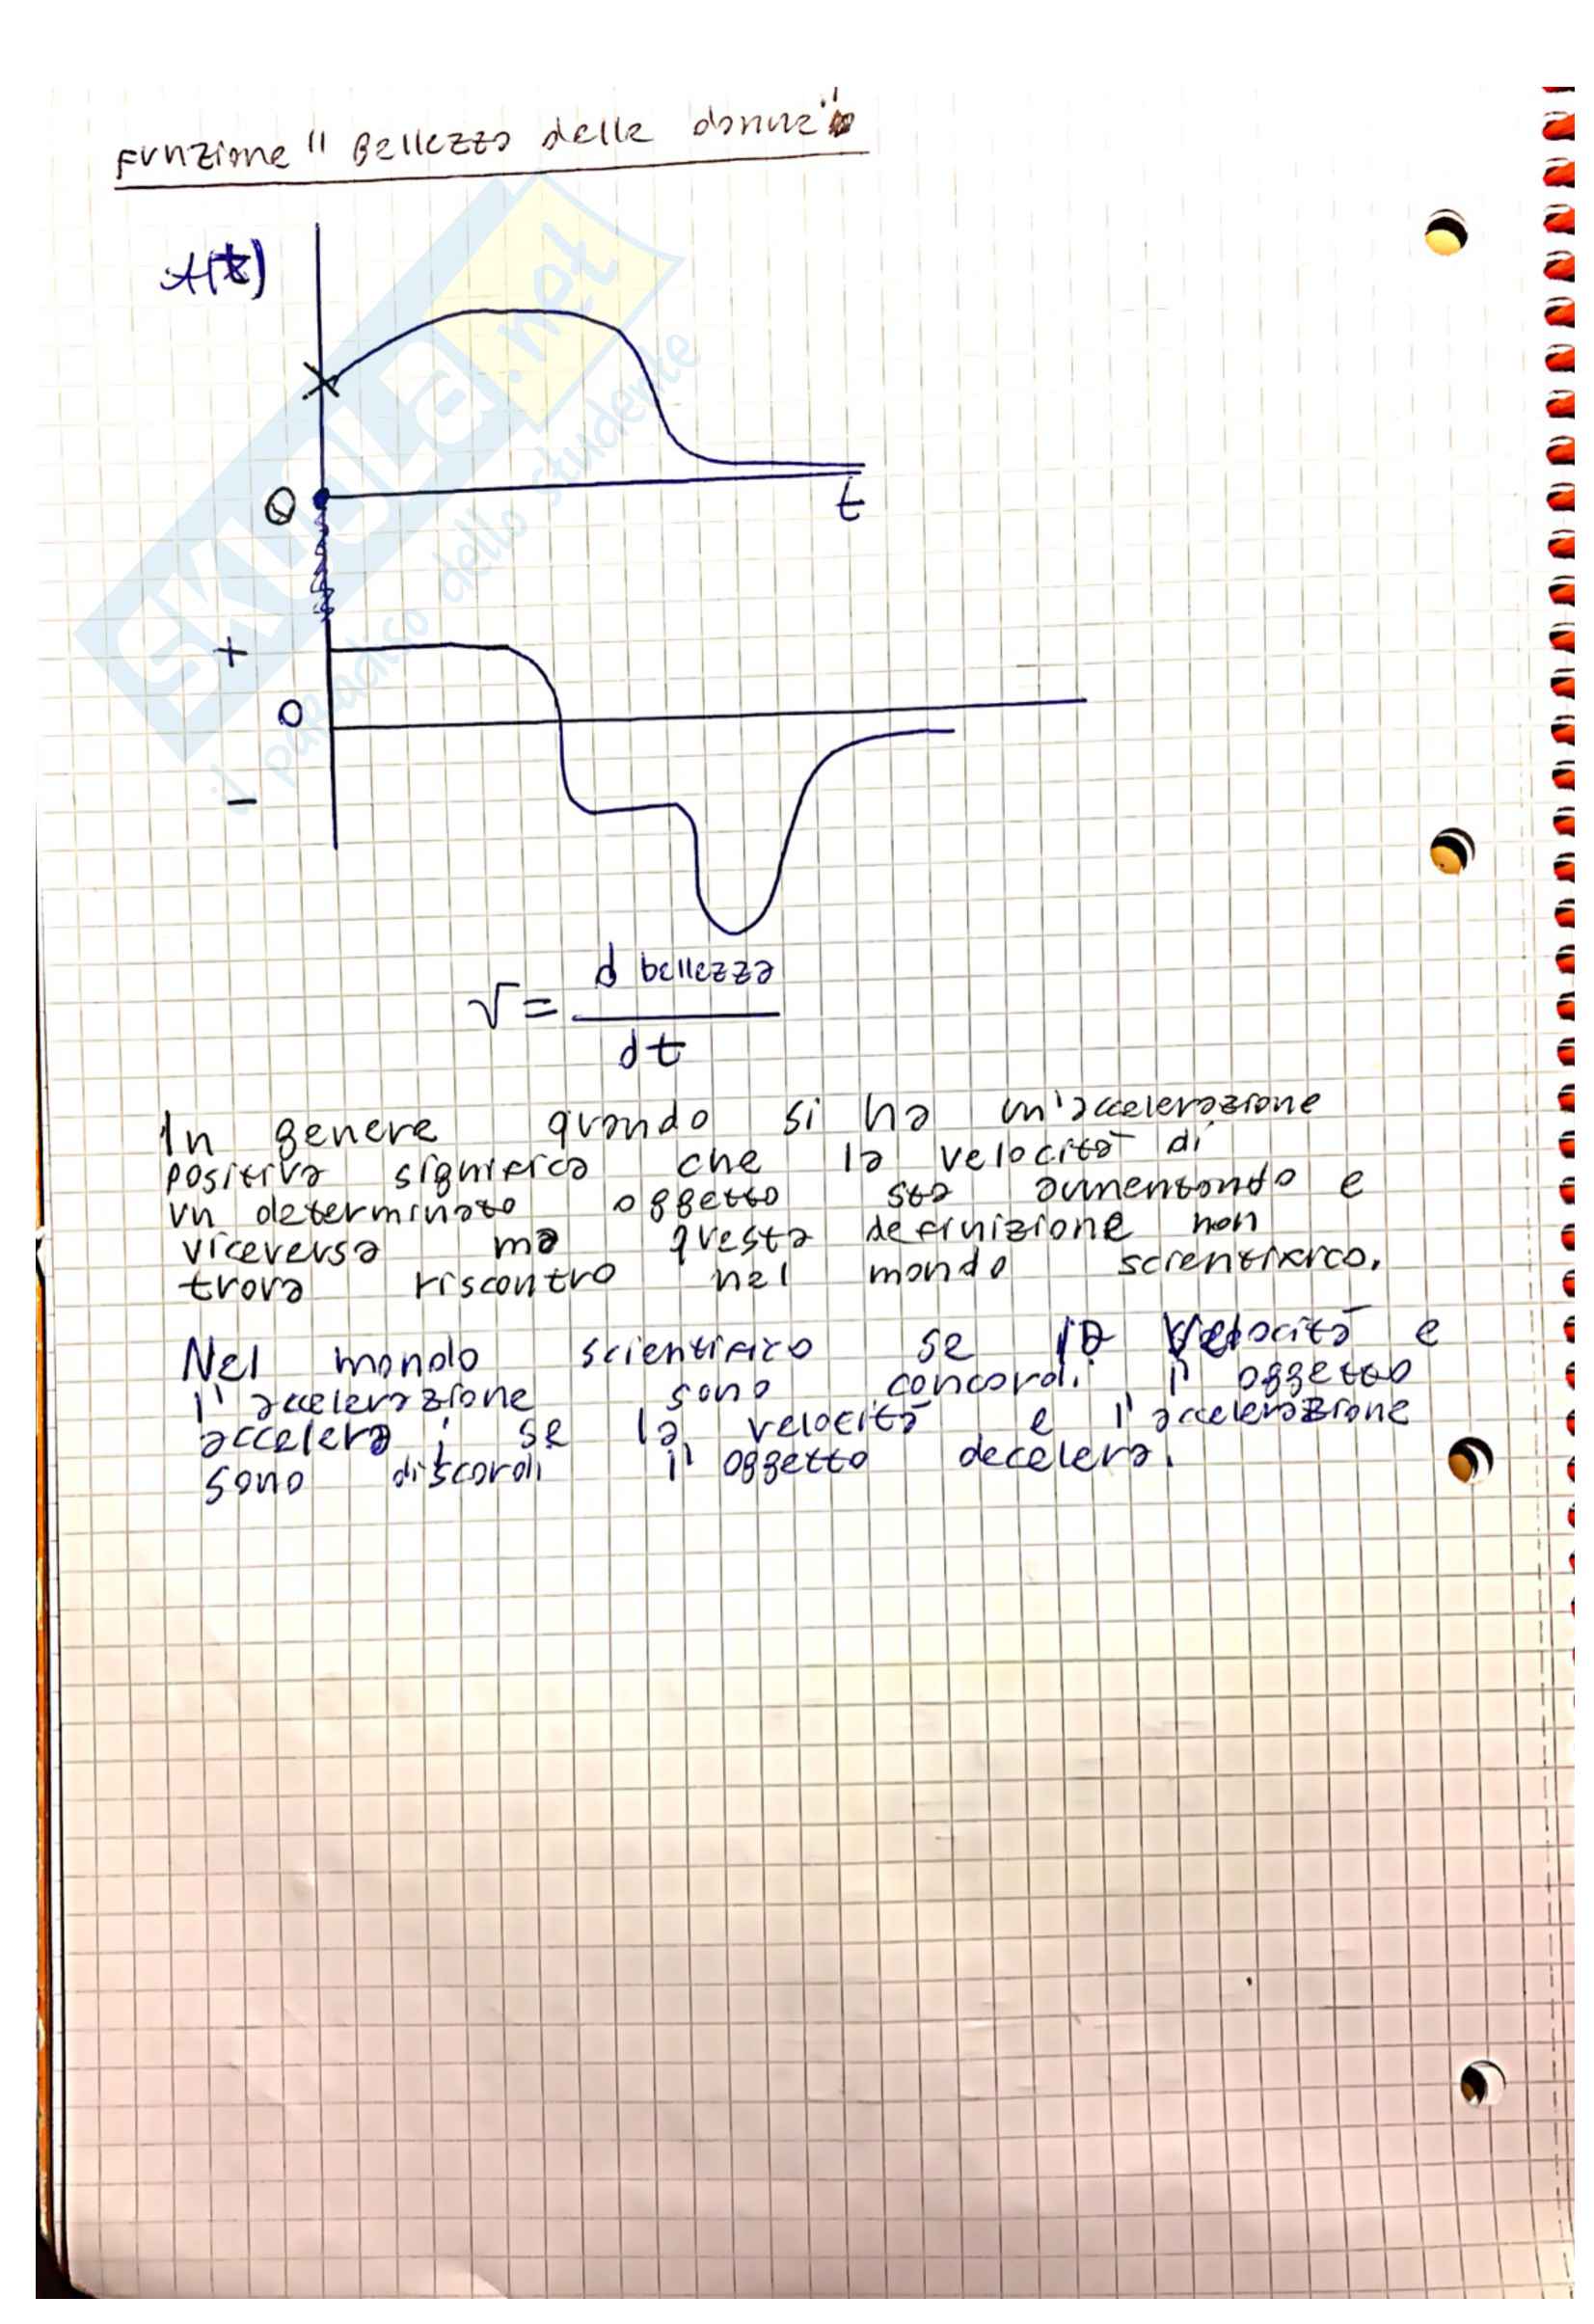 Funzione "Bellezza delle donne"
x(t)
0
t
+
0
-
V = d bellezza
dt
In genere quando si ha un'accelerazione
positiva significa che la velocità di
un determinato oggetto sta aumentando e
viceversa ma questa definizione non
trova riscontro nel mondo scientifico.
Nel mondo scientifico se la velocità e
l'accelerazione sono concordi l'oggetto
accelera; se la velocità e l'accelerazione
sono discordi l'oggetto decelera.
SKUOLA.net
il paradiso dello studente